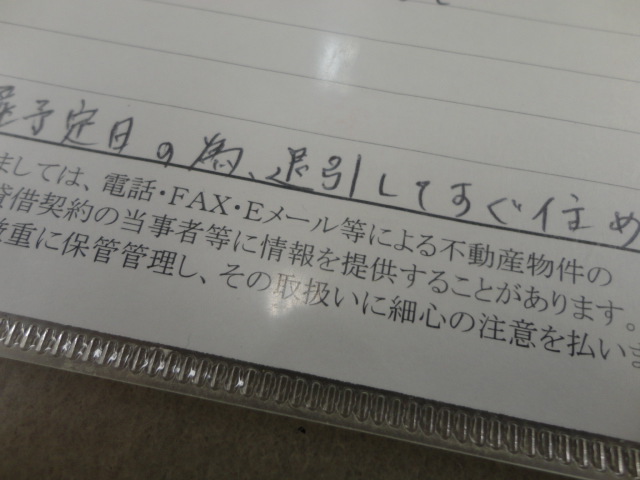 予定日の為、退引してすぐ住め
ましては、電話・FAX・Eメール等による不動産物件の
貸借契約の当事者等に情報を提供することがあります。
重に保管管理し、その取扱いに細心の注意を払いま